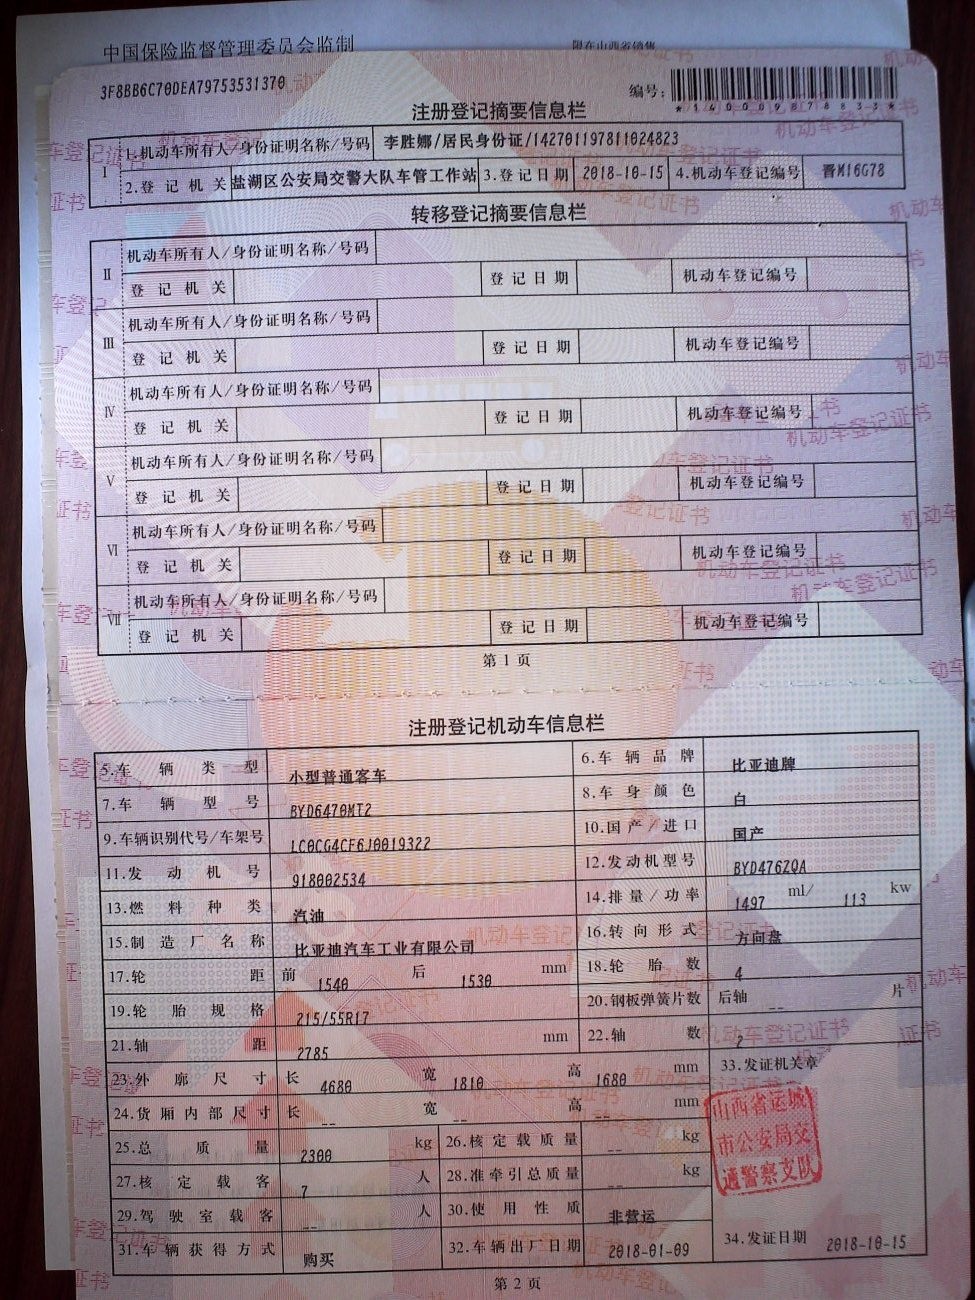 中国保险监督管理委员会监制
限在山西省销售
3F8BB6C70DEA79753531370
编号:
*140009878833*
注册登记摘要信息栏
I 1.机动车所有人/身份证明名称/号码 李胜娜/居民身份证/142701197811024823
2.登记机关 盐湖区公安局交警大队车管工作站 3.登记日期 2018-10-15 4.机动车登记编号 晋M16G78
转移登记摘要信息栏
II 机动车所有人/身份证明名称/号码
登记机关 登记日期 机动车登记编号
III 机动车所有人/身份证明名称/号码
登记机关 登记日期 机动车登记编号
IV 机动车所有人/身份证明名称/号码
登记机关 登记日期 机动车登记编号
V 机动车所有人/身份证明名称/号码
登记机关 登记日期 机动车登记编号
VI 机动车所有人/身份证明名称/号码
登记机关 登记日期 机动车登记编号
VII 机动车所有人/身份证明名称/号码
登记机关 登记日期 机动车登记编号
第1页
注册登记机动车信息栏
5.车辆类型 小型普通客车 6.车辆品牌 比亚迪牌
7.车辆型号 BYD6470MT2 8.车身颜色 白
9.车辆识别代号/车架号 LC0CG4CF6J0019322 10.国产/进口 国产
11.发动机号 918002534 12.发动机型号 BYD476ZQA
13.燃料种类 汽油 14.排量/功率 1497 ml/ 113 kw
15.制造厂名称 比亚迪汽车工业有限公司 16.转向形式 方向盘
17.轮距 前 1540 后 1530 mm 18.轮胎数 4
19.轮胎规格 215/55R17 20.钢板弹簧片数 后轴 -- 片
21.轴距 2785 mm 22.轴数 2
23.外廓尺寸 长 4680 宽 1810 高 1680 mm 33.发证机关章
24.货厢内部尺寸 长 -- 宽 -- 高 -- mm
山西省运城
市公安局交
通警察支队
25.总质量 2300 kg 26.核定载质量 -- kg
27.核定载客 7 人 28.准牵引总质量 -- kg
29.驾驶室载客 -- 人 30.使用性质 非营运
31.车辆获得方式 购买 32.车辆出厂日期 2018-01-09 34.发证日期 2018-10-15
第2页